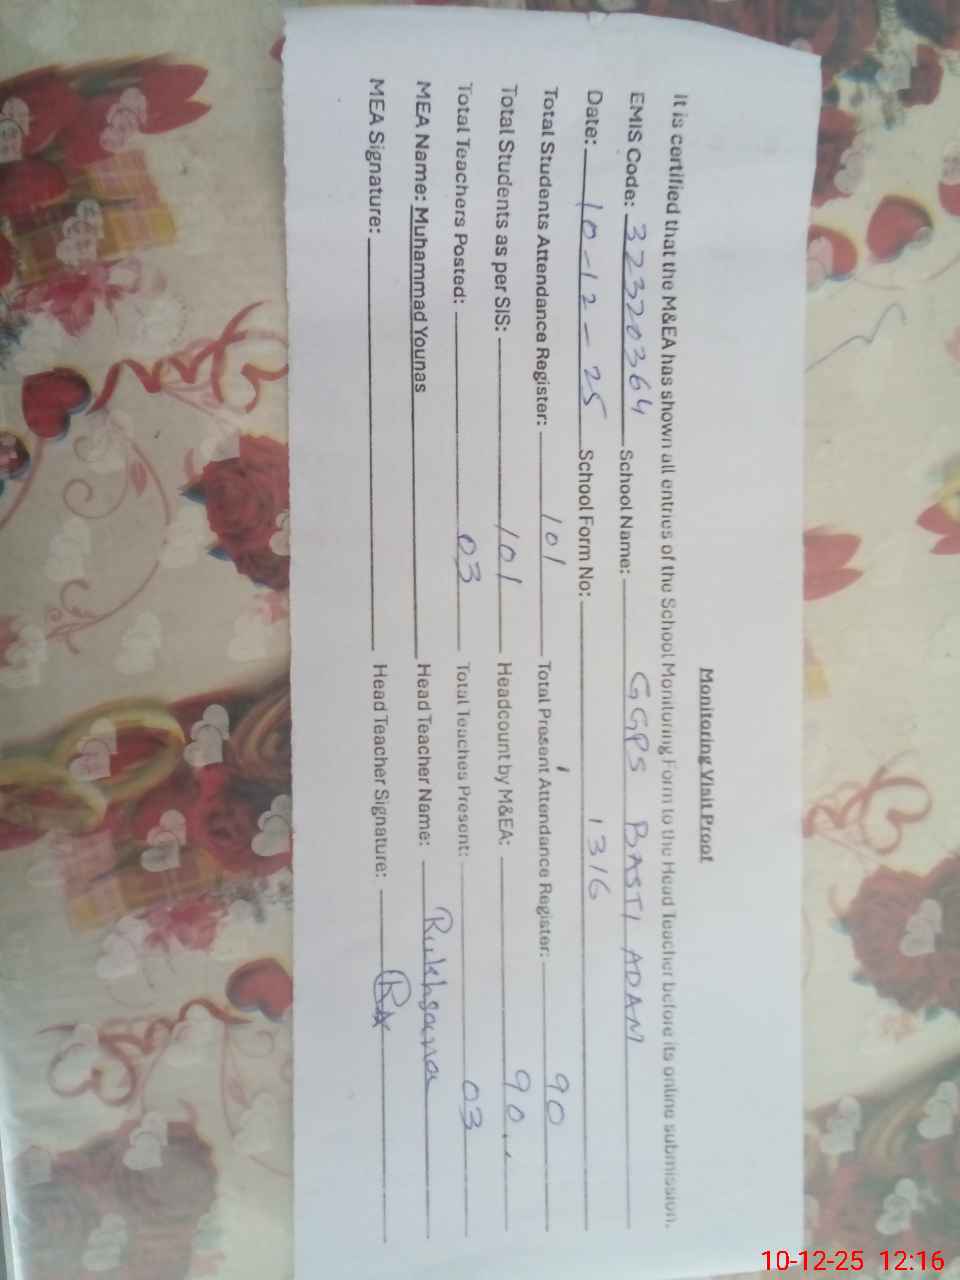 Monitoring Visit Proof
It is certified that the M&EA has shown all entries of the School Monitoring Form to the Head Teacher before its online submission.
EMIS Code: 32320364 School Name: GGPS BASTI ADAM
Date: 10-12-25 School Form No: 1316
Total Students Attendance Register: 101 Total Present Attendance Register: 90
Total Students as per SIS: 101 Headcount by M&EA: 90
Total Teachers Posted: 03 Total Teaches Present: 03
MEA Name: Muhammad Younas Head Teacher Name: Rukhsana
MEA Signature: Head Teacher Signature:
10-12-25 12:16